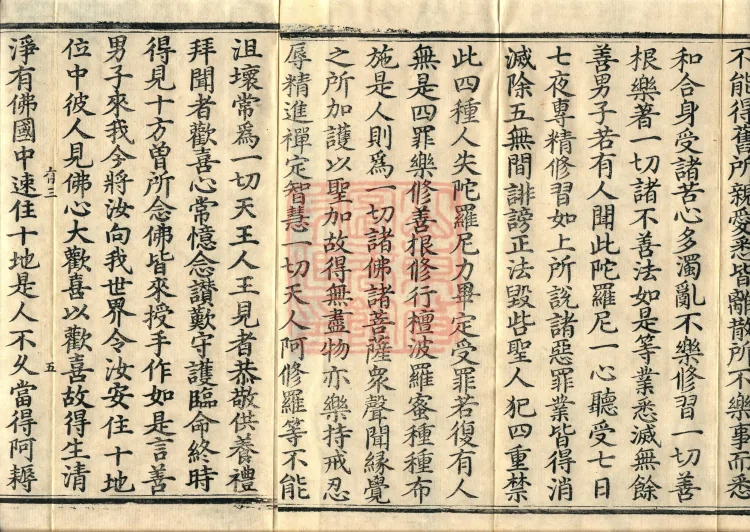 不能得舊所親愛悉皆離散所不樂事而悉
和合身受諸苦心多濁亂不樂修習一切善
根樂著一切諸不善法如是等業悉滅無餘
善男子若有人聞此陀羅尼一心聽受七日
七夜專精修習如上所說諸惡罪業皆得消
滅除五無間誹謗正法毀呰聖人犯四重禁
此四種人失陀羅尼力畢定受罪若復有人
無是四罪樂修善根修行檀波羅蜜種種布
施是人則為一切諸佛諸菩薩衆聲聞緣覺
之所加護以聖加故得無盡物亦樂持戒忍
辱精進禪定智慧一切天人阿修羅等不能
沮壞常爲一切天王人王見者恭敬供養禮
拜聞者歡喜心常憶念讃歎守護臨命終時
得見十方曾所念佛皆來授手作如是言善
男子來我今將汝向我世界令汝安住十地
位中彼人見佛心大歡喜以歡喜故得生清
五
淨有佛國中速住十地是人不久當得阿耨